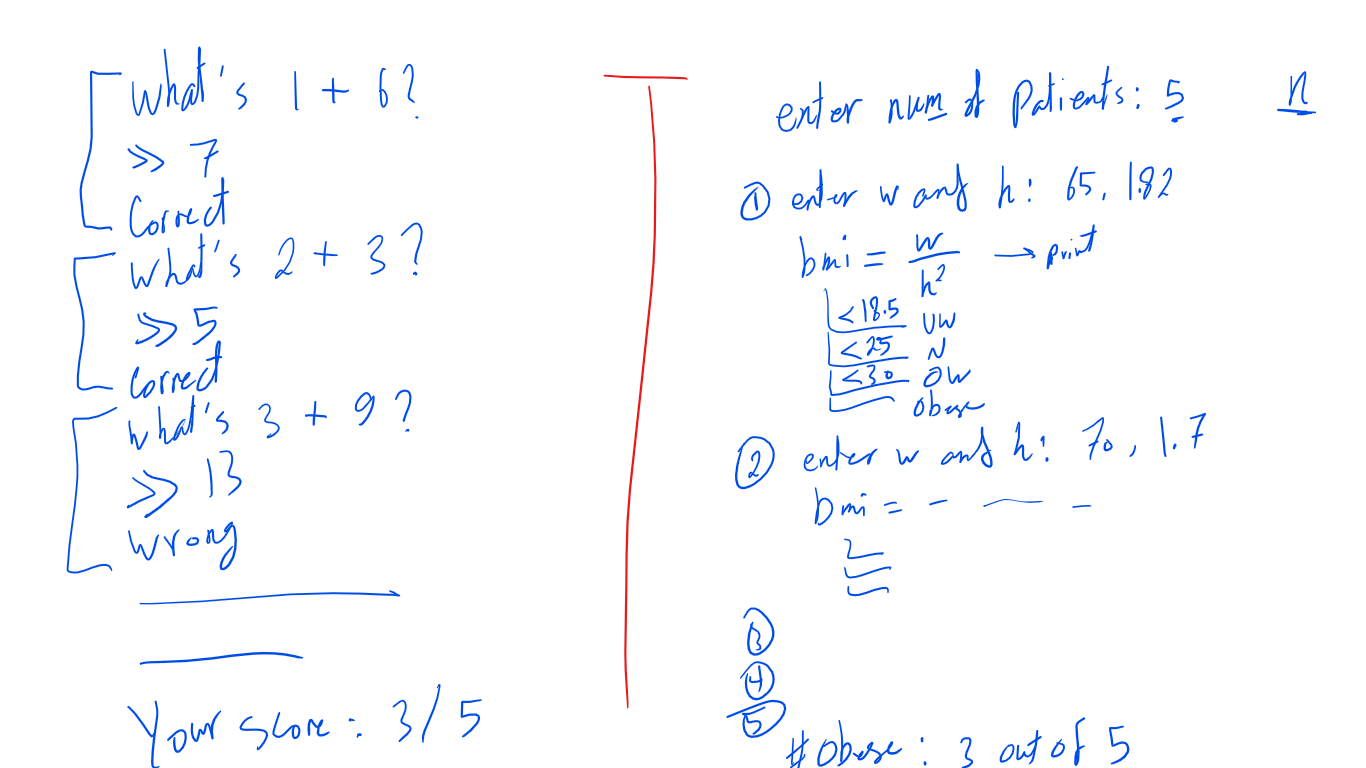 What's 1 + 6?
>> 7
Correct
What's 2 + 3?
>> 5
Correct
What's 3 + 9?
>> 13
Wrong
Your score: 3/5
enter num of Patients: 5
n
① enter w and h: 65, 1.82
bmi = w/h² → print
<18.5 UW
<25 N
<30 OW
obese
② enter w and h: 70, 1.7
bmi = - — -
③
④
⑤
#obese: 3 out of 5